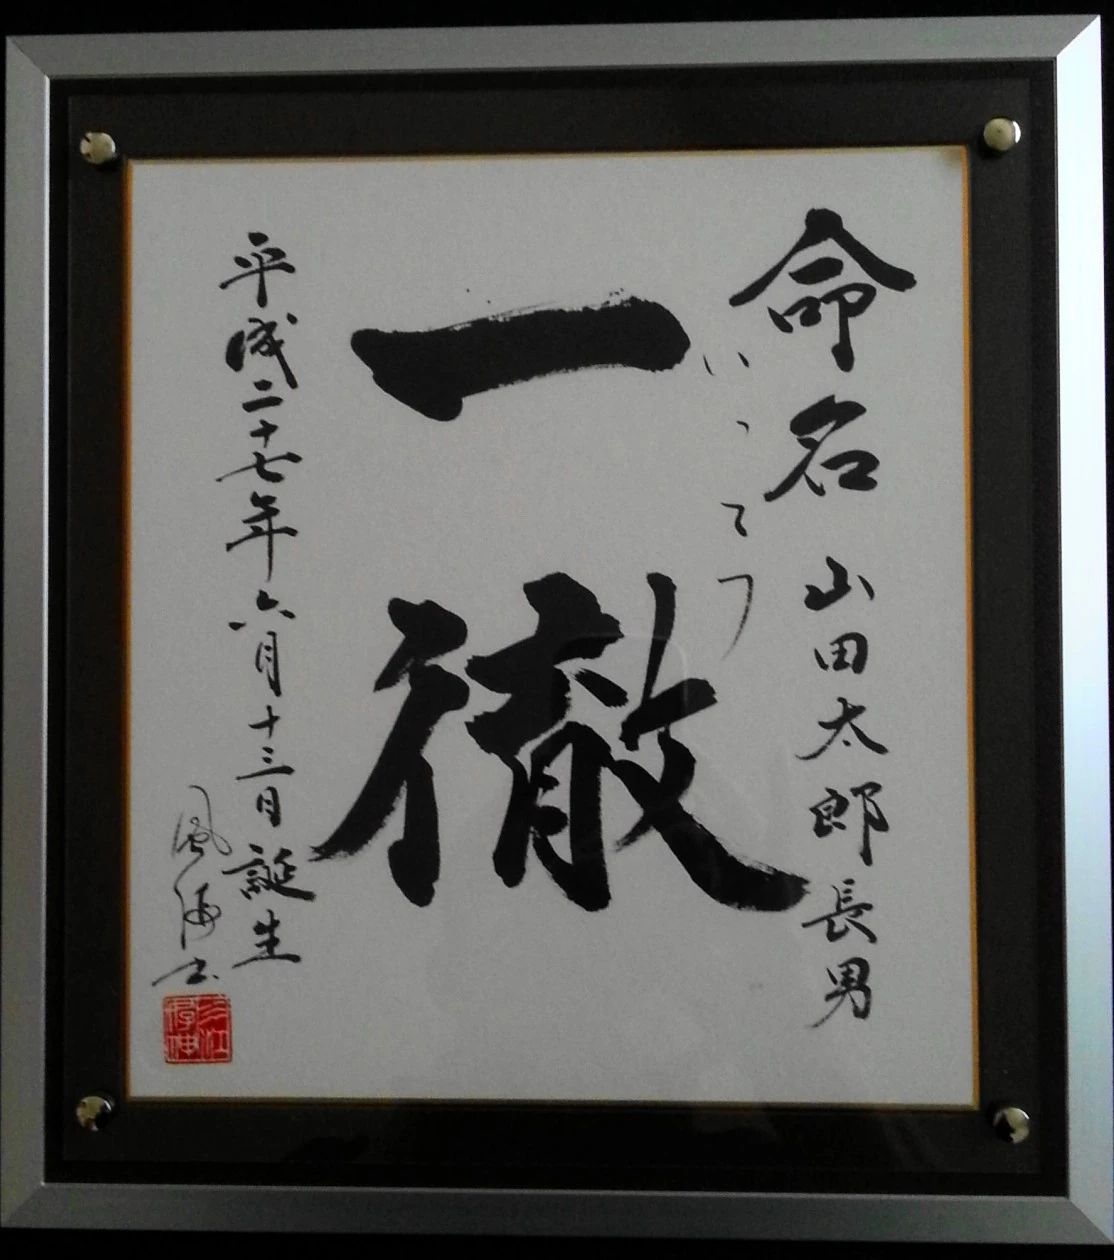 命名 山田太郎長男
いってつ
一徹
平成二十七年六月十三日誕生
風海書